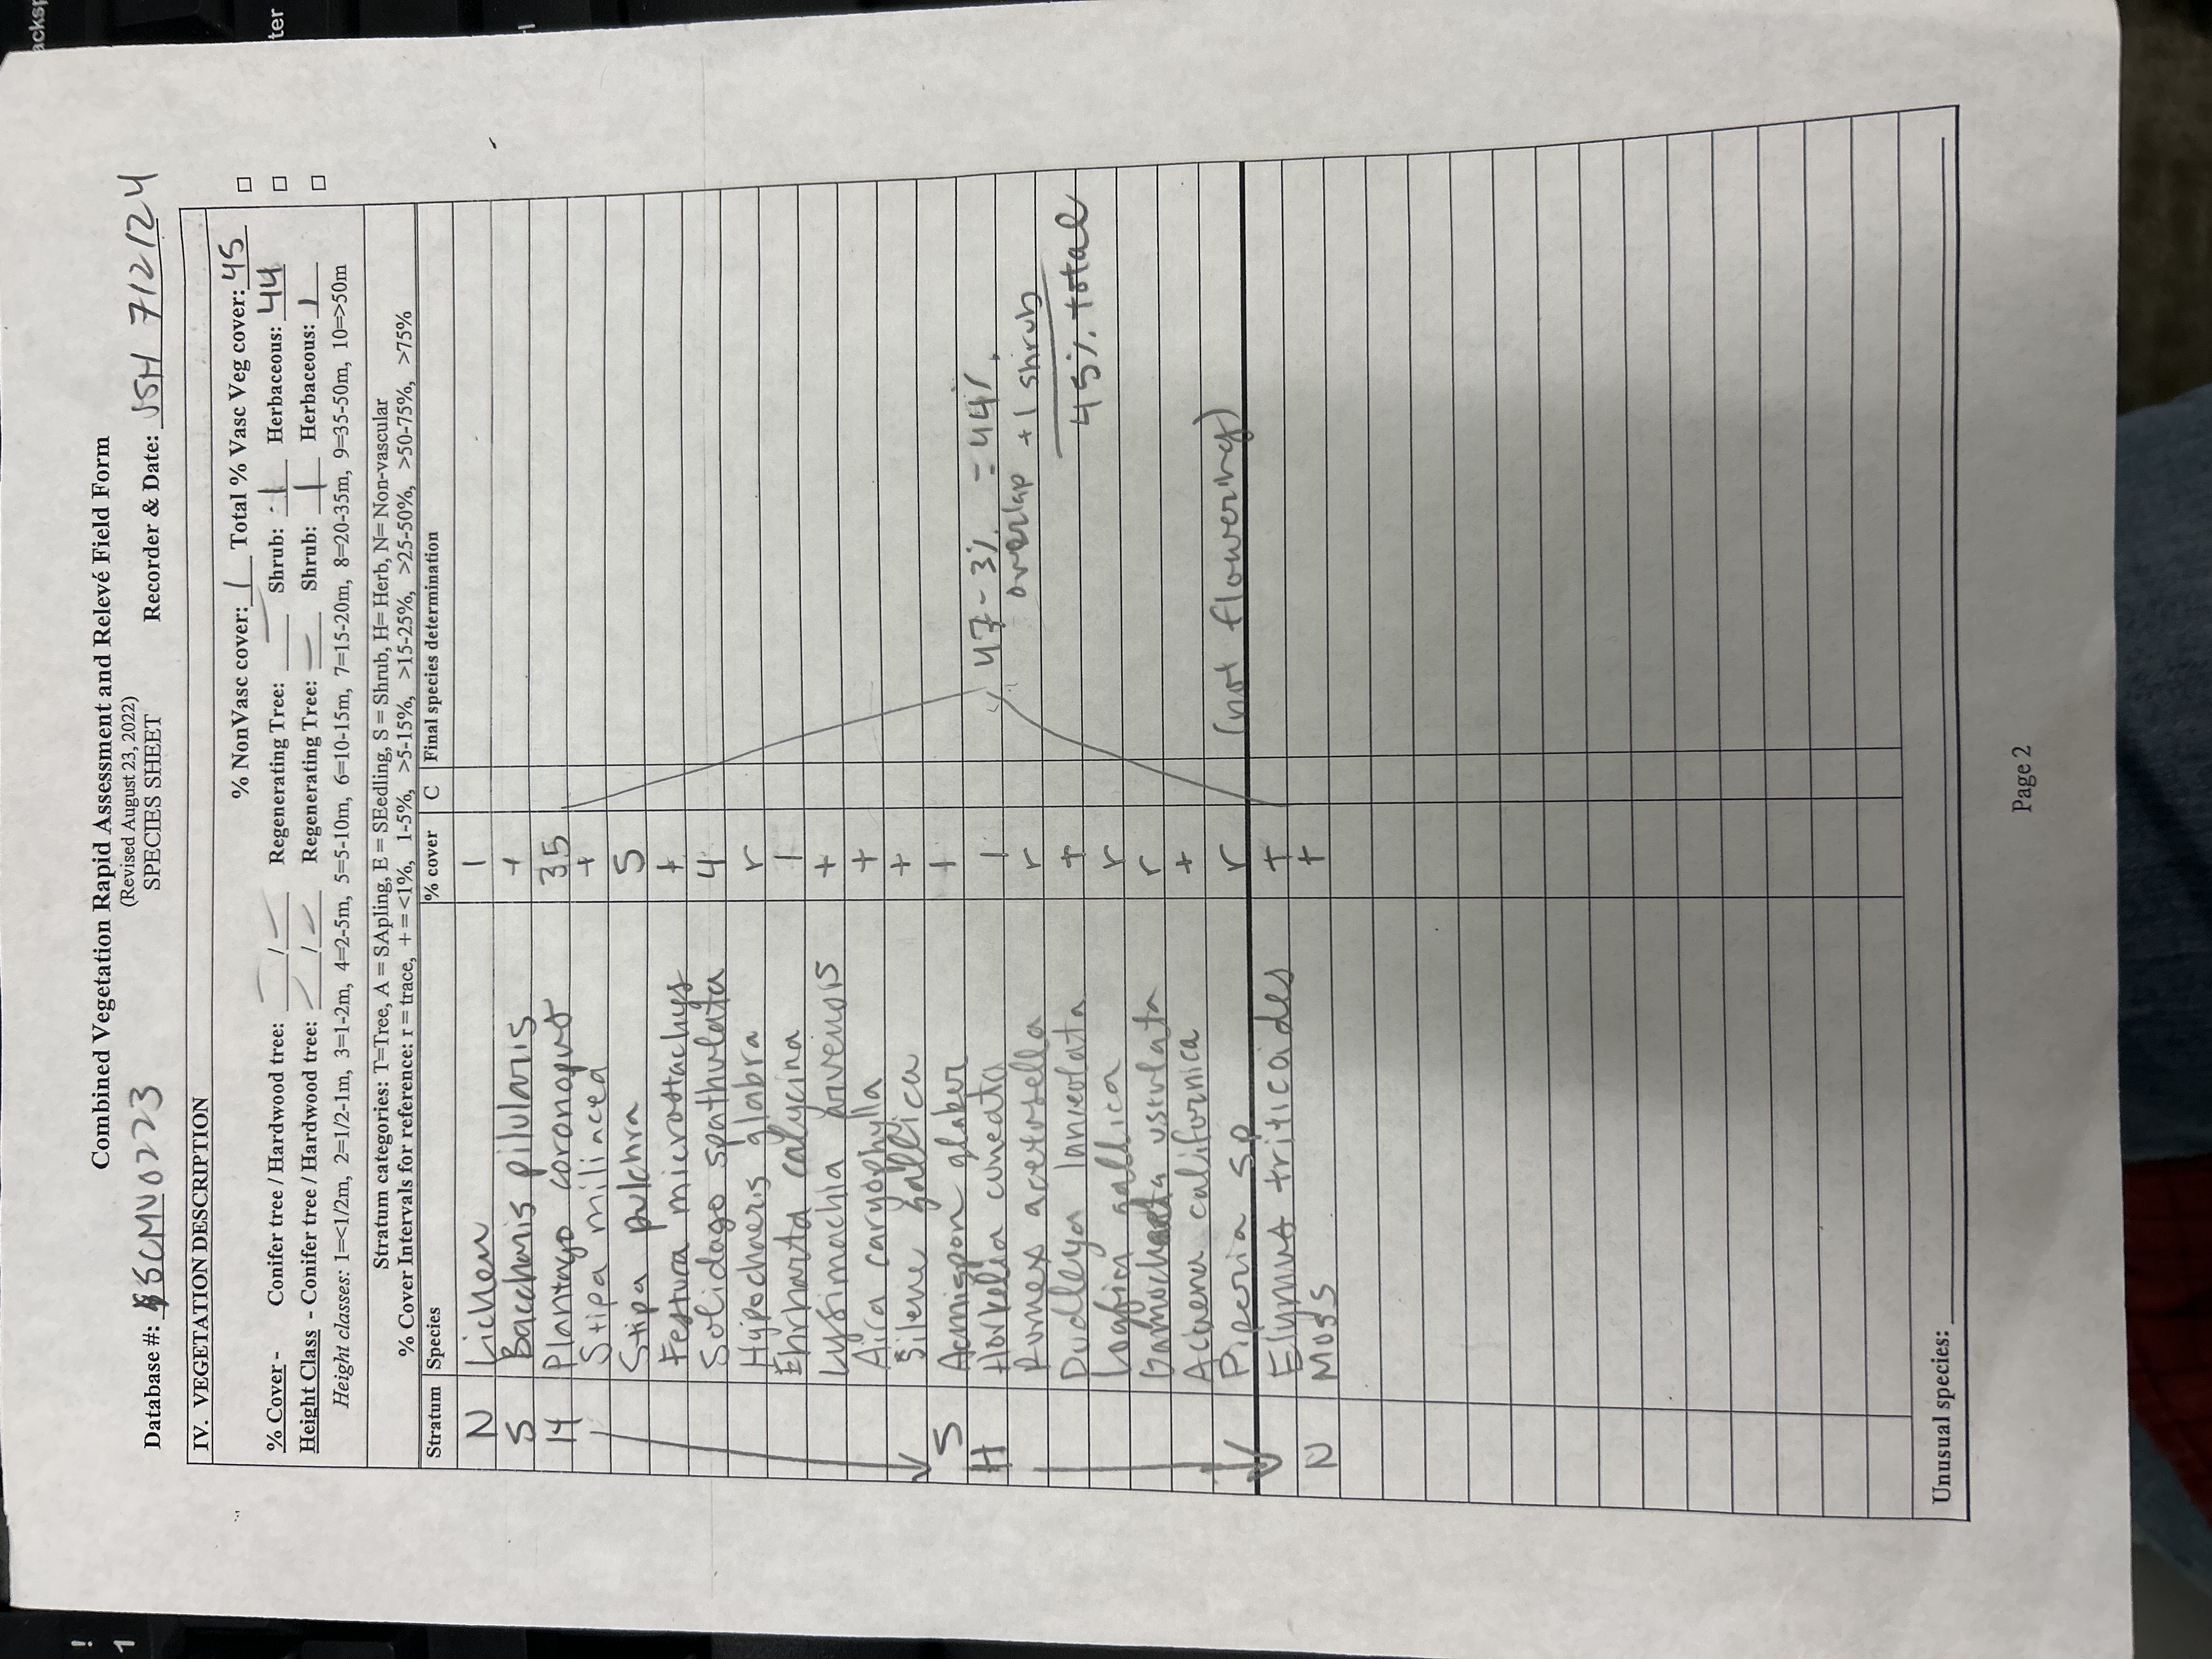 Combined Vegetation Rapid Assessment and Relevé Field Form
(Revised August 23, 2022)
SPECIES SHEET
Database #: SCMV0223 Recorder & Date: JSH 7/2/24
IV. VEGETATION DESCRIPTION
% NonVasc cover: 1 Total % Vasc Veg cover: 45
% Cover - Conifer tree / Hardwood tree: — / — Regenerating Tree: — Shrub: 1 Herbaceous: 44 □
Height Class - Conifer tree / Hardwood tree: — / — Regenerating Tree: — Shrub: 1 Herbaceous: 1 □
Height classes: 1=<1/2m, 2=1/2-1m, 3=1-2m, 4=2-5m, 5=5-10m, 6=10-15m, 7=15-20m, 8=20-35m, 9=35-50m, 10=>50m
Stratum categories: T=Tree, A = SApling, E = SEedling, S = Shrub, H= Herb, N= Non-vascular
% Cover Intervals for reference: r = trace, + = <1%, 1-5%, >5-15%, >15-25%, >25-50%, >50-75%, >75%
Stratum Species % cover C Final species determination
N Lichen 1
S Baccharis pilularis +
H Plantago coronopus 35
Stipa miliacea +
Stipa pulchra 5
Festuca microstachys +
Solidago spathulata 4
Hypochaeris glabra r
Ehrharta calycina 1
Lysimachia arvensis +
Aira caryophylla +
Silene gallica +
S Acmispon glaber +
H Horkelia cuneata 1 47 - 3% = 44%
Rumex acetosella r overlap +1 shrub
Dudleya lanceolata + 45% total
Logfia gallica r
Gamochaeta ustulata r
Acaena californica +
Piperia sp r (not flowering)
Elymus triticoides +
N Moss +
Unusual species:
Page 2